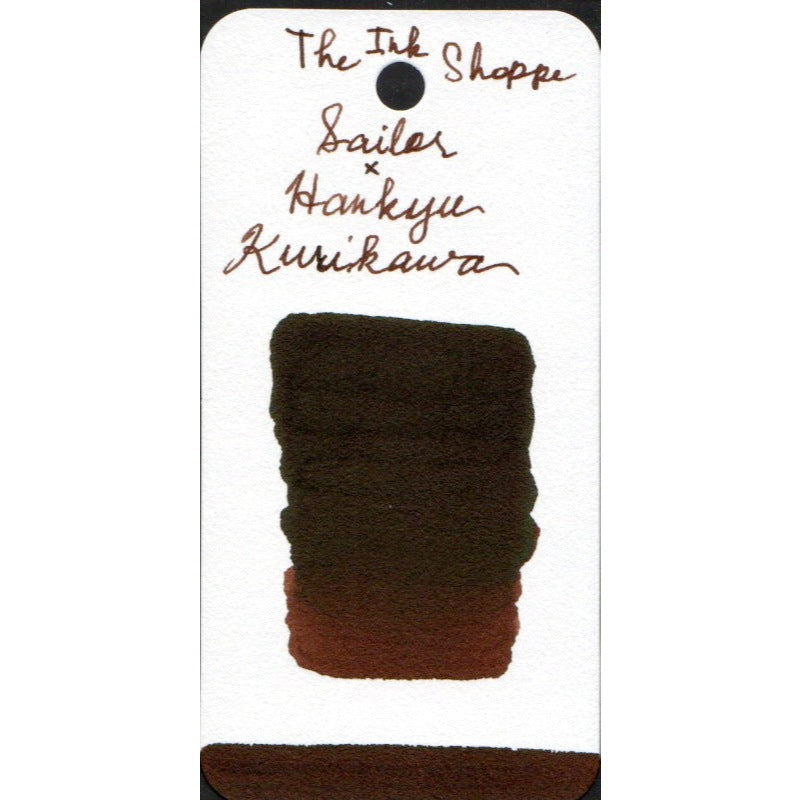 The Ink Shoppe
Sailor
x
Hankyu
Kurikawa